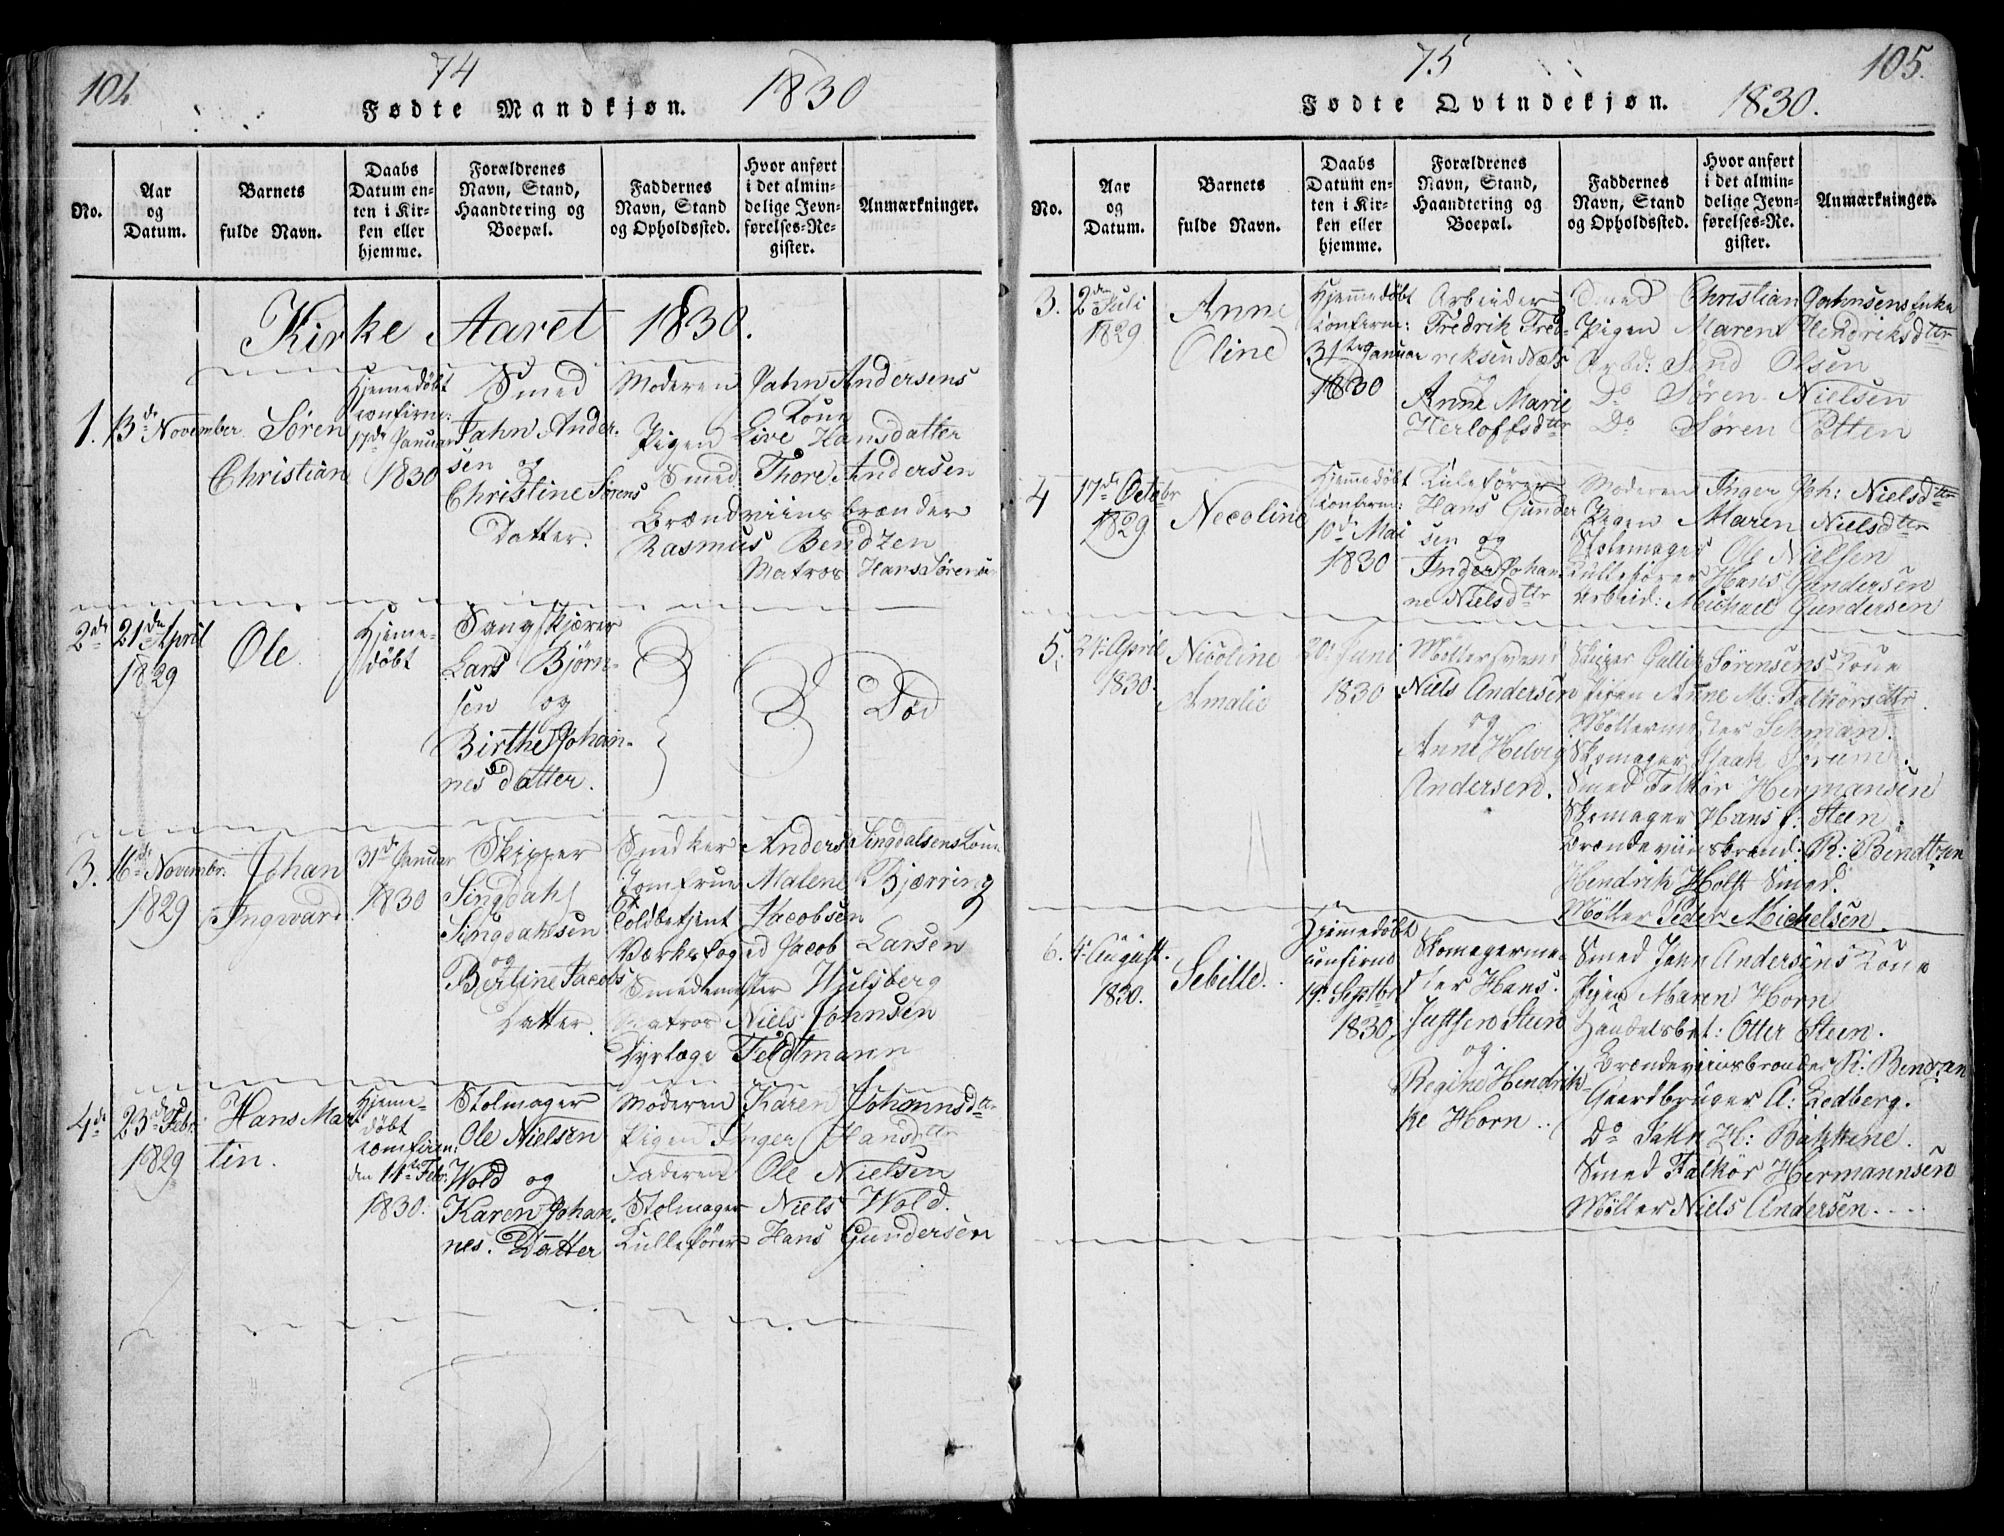 104
74
Fødte Mandkjøn.
1830
No.
Aar
og
Datum.
Barnets
fulde Navn.
Daabs
Datum en-
ten i Kir-
ken eller
hjemme.
Forældrenes
Navn, Stand,
Haandtering og
Boepæl.
Faddernes
Navn, Stand
og Opholdssted.
Hvor anført
i det almin-
delige Jevn-
førelses-Re-
gister.
Anmærkninger.
Kirke Aaret 1830.
1.
13de November
Søren
Christian
Hjemedøbt
confirm:
17de Januar
1830
Smed
Jahn Ander-
sen og
Christine Sørens
Datter.
Moderen Jahn Andersens
Kone
Pigen Live Hansdatter
Smed Thore Andersen
Brændviinsbrænder
Rasmus Bendzen
Matros Hans Sørensen
2de
21de April
1829
Ole
Hjeme-
døbt
Sangskjærer
Lars Bjørn-
sen og
Birthe Johan-
nesdatter.
Død
3.
16de Novembr.
1829
Johan
Ingvard.
31de Januar
1830
Skipper
Singdahl
Singdahlsen
og
Berline Jacobs
Datter.
Snedker Anders Singdalsens Kone
Jomfrue Malene Bjærring
Toldbetjent Jacobsen
Værksfoged Jacob Larsen
Smedemester Hulsberg
Matros Niels Johnsen
Dyrlæge Feldtmann
4de
23de Febr.
1829
Hans Mar-
tin.
Hjeme-
døbt
comfirm:
den 14de Febr.
1830.
Stolmager
Ole Nielsen
Wold og
Karen Johan-
nes. Datter
Moderen Karen Johannsdtr
Pigen Inger Hansdtr
Faderen Ole Nielsen
Stolmager Niels Wold.
Kullefører Hans Gundersen
75
105.
Fødte Qvindekjøn.
1830.
No.
Aar
og
Datum.
Barnets
fulde Navn.
Daabs
Datum en-
ten i Kir-
ken eller
hjemme.
Forældrenes
Navn, Stand,
Haandtering og
Boepæl.
Faddernes
Navn, Stand
og Opholdssted.
Hvor anført
i det almin-
delige Jevn-
førelses-Re-
gister.
Anmærkninger.
3.
2den Juli
1829
Anne
Oline
Hjemmedøbt
Confirm:
31te Januar
1830
Arbeider
Fredrik Fred-
riksen Næs
og
Anne Marie
Herloffsdtr
Smed Christian Jahnsens Enke
Pigen Maren Hendriksdtr
Arbd: Olsen
Do Søren Nielsen
Do Søren Potten
4
17de Octobr
1829
Necoline
Hjemmedøbt
Confirm:
10de Mai
1830
Kulefører
Hans Gunder
sen og
Inger Johan-
ne Nielsdtr
Moderen Inger Joh: Nielsdtr
Pigen Maren Nielsdtr
Stolemager Ole Nielsen
Kullefører Hans Gundersen
Arbeid: Michael Gundersen
5.
24. April
1830.
Nicoline
Amalie
20. Juni
1830
Møllersvend
Niels Andersen
og
Anne Helvig
Andersen.
Skiper Sørensens Kone
Pigen Anne M: Falkørsdtr.
Møllermester Lehman.
Skomager Isaak Sørum.
Smed Falkør Hermansen
Skomager Hans J. Steen.
Brændeviinsbrænd: R: Bendtzen
Hendrik Holst Smed.
Møller Peder Michelsen.
6.
4. August.
1830.
Sebille.
Hjemedøbt
confirmd
19. Septbr.
1830
Skomagerme-
ster Hans
Justsen Steen
og
Regine Hendrik-
ke Horn.
Smed Jahn Andersens Kone
Pigen Maren Horn
Handelsbet: Otter Steen.
Brændeviinsbrænder R: Bendzen
Gaardbruger A: Liedberg.
Do Jahn H:
Smed Falkør Hermannsen
Møller Niels Andersen.